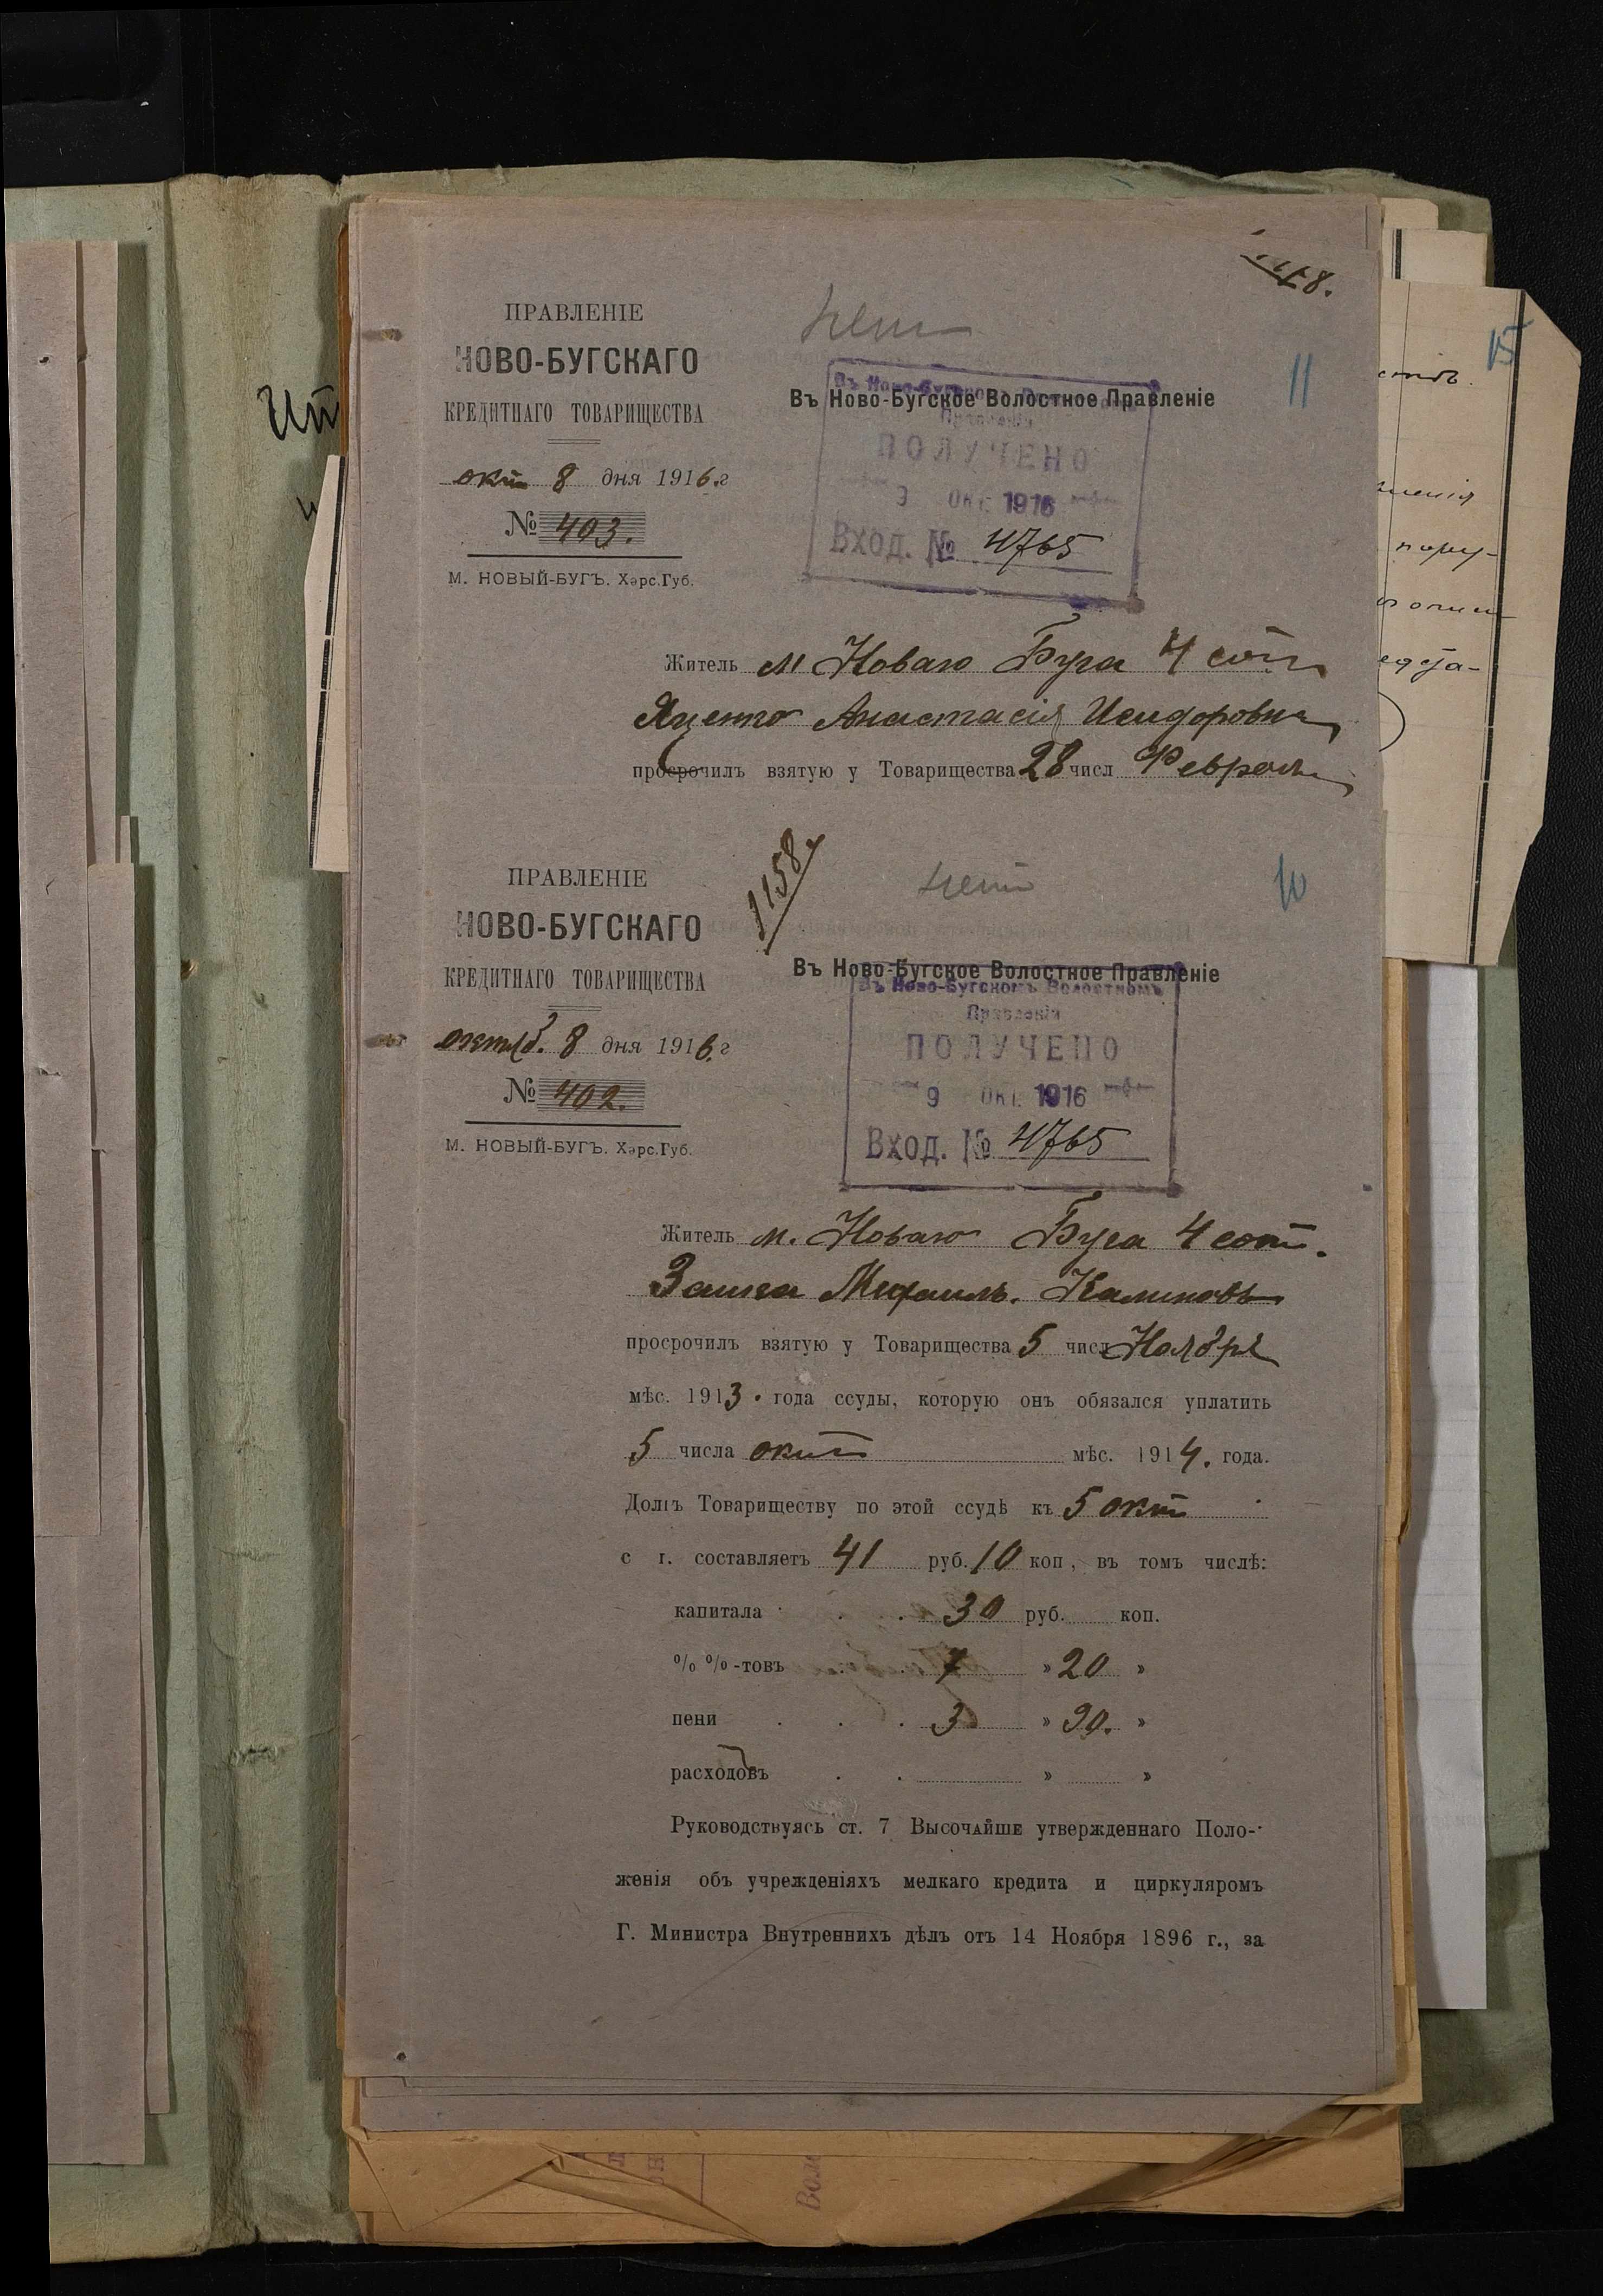 ПРАВЛЕНІЕ
НОВО-БУГСКАГО
КРЕДИТНАГО ТОВАРИЩЕСТВА
окт 8 дня 1916 г
№ 403.
М. НОВЫЙ-БУГЪ. Хэрс.Губ.
8.
11
Въ Ново-Бугское Волостное Правленіе
Правленіи
ПОЛУЧЕНО
9 ОКТ. 1916
Вход. № 4765
Житель м Новаго Буга 4 сот
Яценко Анастасія Исидоровна
просрочилъ взятую у Товарищества 28 числ Февраля
15
пору-
ПРАВЛЕНІЕ
НОВО-БУГСКАГО
КРЕДИТНАГО ТОВАРИЩЕСТВА
октяб. 8 дня 1916. г
№ 402.
М. НОВЫЙ-БУГЪ. Хэрс.Губ.
1158
10
Въ Ново-Бугское Волостное Правленіе
Въ Ново-Бугскомъ Волостномъ
Правленіи
ПОЛУЧЕНО
9 ОКТ. 1916
Вход. № 4765
Житель м. Новаго Буга 4 сот.
Михаилъ. Калиновъ
просрочилъ взятую у Товарищества 5 числ Ноября
мѣс. 1913. года ссуды, которую онъ обязался уплатить
5 числа окт мѣс. 1914. года.
Долгъ Товариществу по этой ссудѣ къ 5 окт
с г. составляетъ 41 руб. 10 коп, въ томъ числѣ:
капитала . . 30 руб. коп.
% %-товъ . . 7 » 20 »
пени . . . 3 » 90. »
расходовъ . . » »
Руководствуясь ст. 7 Высочайше утвержденнаго Поло-
женія объ учрежденіяхъ мелкаго кредита и циркуляромъ
Г. Министра Внутреннихъ дѣлъ отъ 14 Ноября 1896 г., за